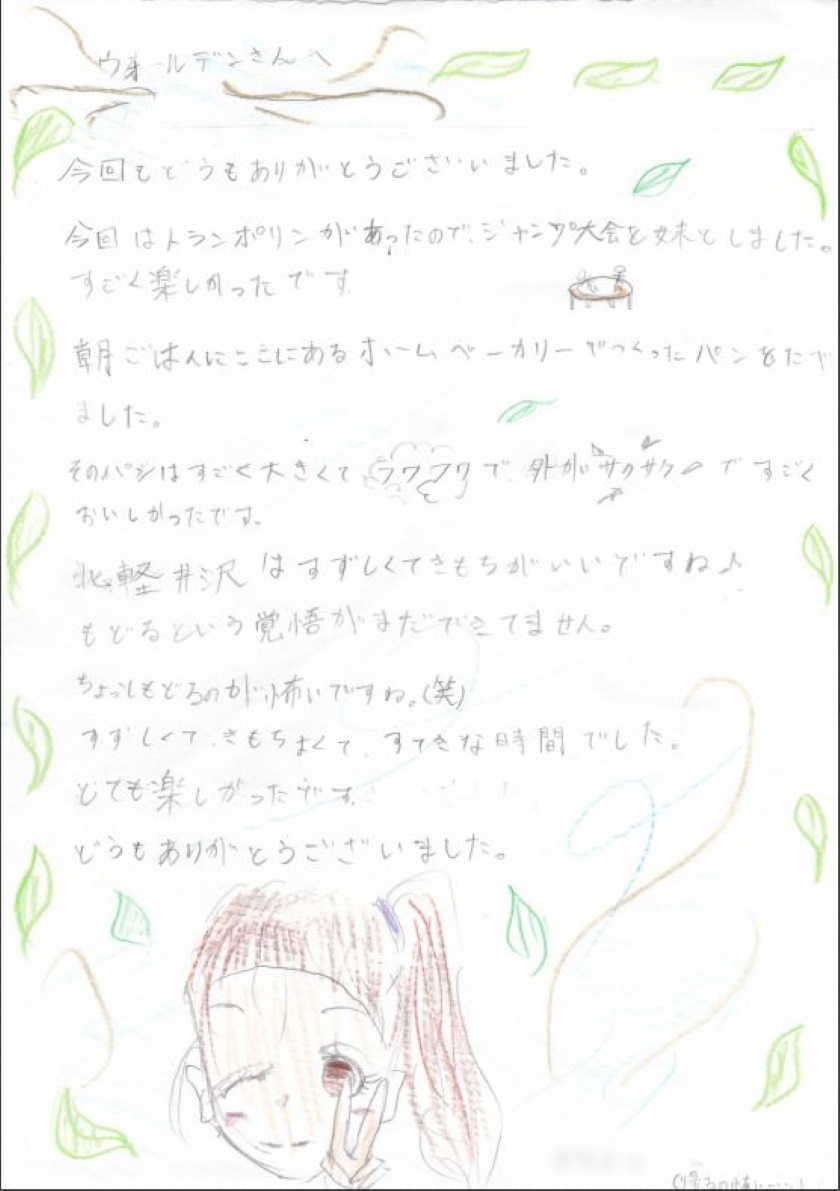 ウォールデンさんへ
今回もどうもありがとうございいました。
今回はトランポリンがあったので、ジャンプ大会を妹としました。
すごく楽しかったです。
朝ごはんにここにあるホームベーカリーでつくったパンをたべ
ました。
そのパンはすごく大きくてフワフワで、外がサクサクですごく
おいしかったです。
北軽井沢はすずしくてきもちがいいですね♪
もどるという覚悟がまだできてません。
ちょっともどるのが怖いですね。(笑)
すずしくて、きもちよくて、すてきな時間でした。
とても楽しかったです。
どうもありがとうございました。